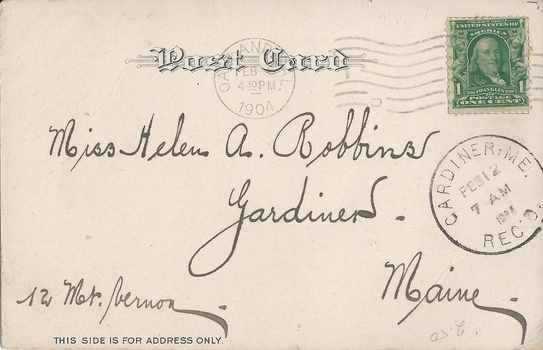 Post Card
FEB
4 30 PM.
1904
UNITED STATES OF
AMERICA
1 FRANKLIN 1
POSTAGE
ONE CENT
Miss Helen A. Robbins
Gardiner.
Maine
12 Mt. Vernon
GARDINER, ME.
FEB 12
7 AM
REC'D.
THIS SIDE IS FOR ADDRESS ONLY.